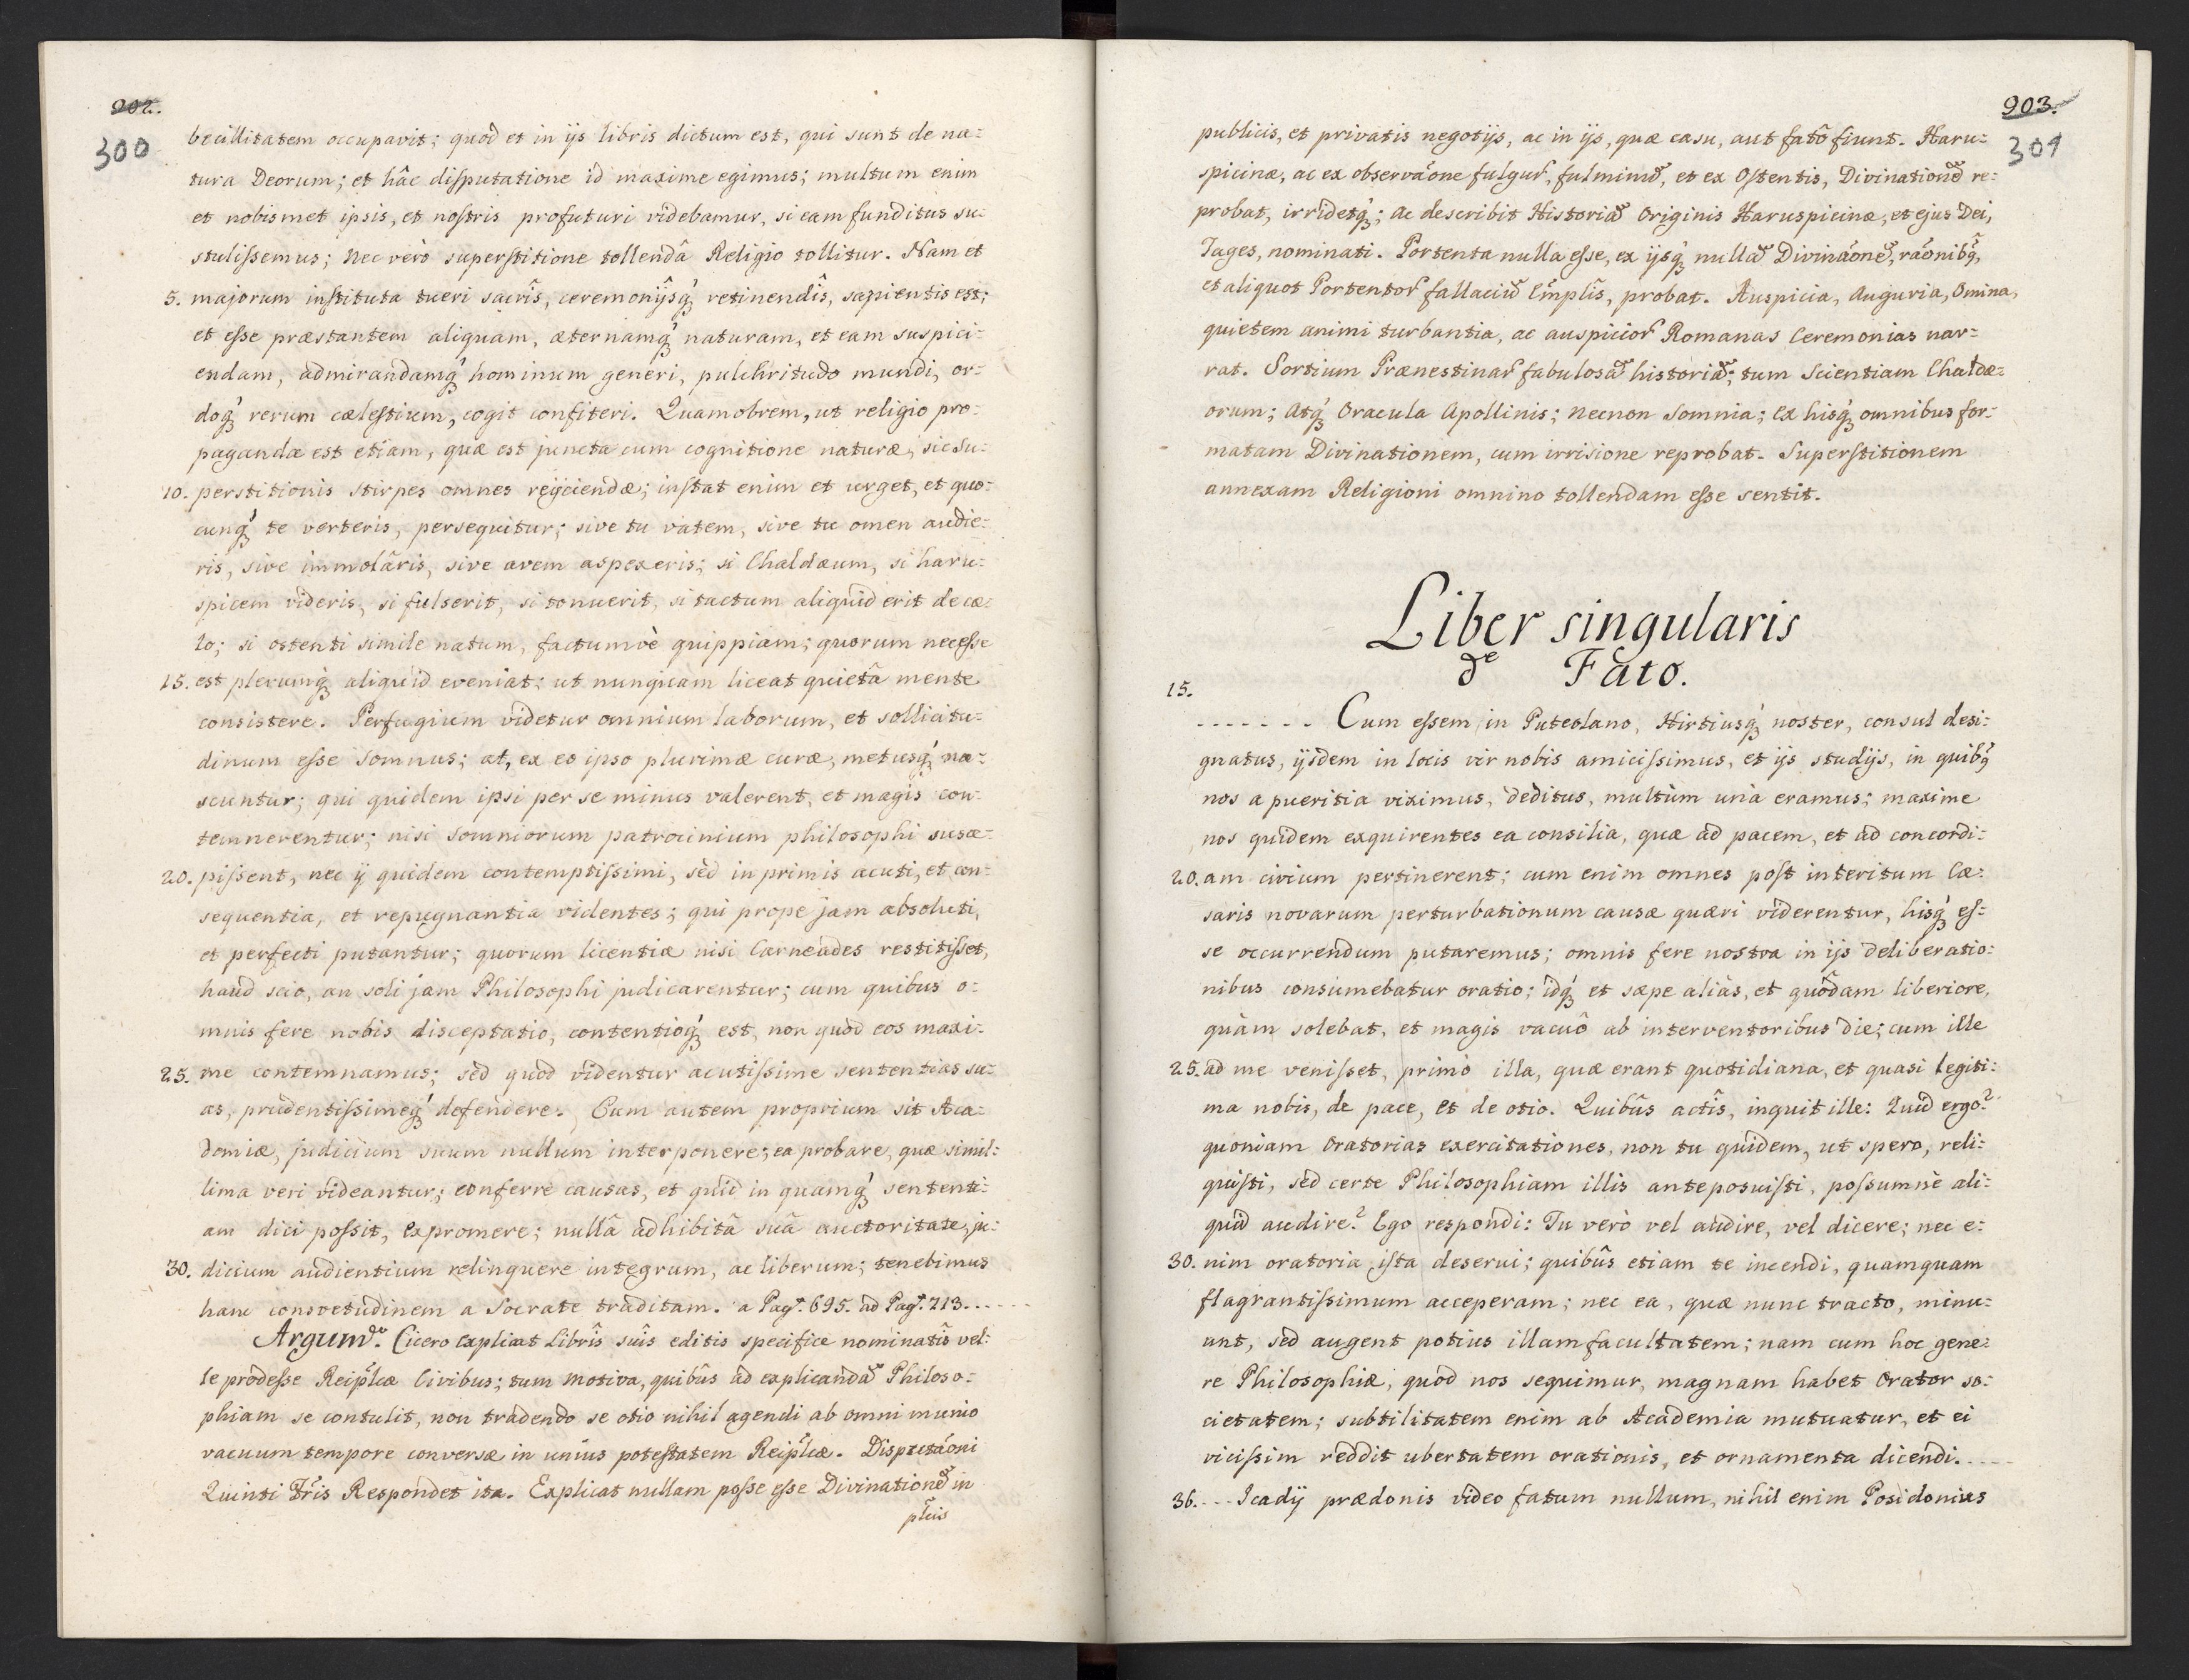 902.
300
becillitatem occupavit; quod et in ijs libris dictum est, qui sunt de na=
tura Deorum; et hâc disputatione id maxime egimus; multum enim
et nobismet ipsis, et nostris profuturi videbamur, si eam funditus su=
stulissemus; Nec verò superstitione tollendâ Religio tollitur. Nam et
5. majorum instituta tueri sacrîs, ceremonijsq́ꝫ retinendîs, sapientis est;
et esse præstantem aliquam, æternamq́ꝫ naturam, et eam suspici=
endam, admirandamq́ꝫ hominum generi, pulchritudo mundi, or=
doq́ꝫ rerum cælestium, cogit confiteri. Quamobrem, ut religio pro=
paganda est etiam, quæ est juncta cum cognitione naturæ, sic su=
10. perstitionis stirpes omnes reijciendæ; instat enim et urget, et quo=
cunq́ꝫ te verteris, persequitur; sive tu vatem, sive tu omen audie=
ris, sive immolâris, sive avem aspexeris; si Chaldæum, si haru=
spicem videris, si fulserit, si tonuerit, si tactum aliquid erit de cæ=
lo; si ostenti simile natum, factumvè quippiam; quorum necesse
15. est plerumq́ꝫ aliquid eveniat: ut nunquam liceat quietâ mente
consistere. Perfugium videtur omnium laborum, et sollicitu=
dinum esse somnus; at, ex eo ipso plurimæ curæ, metusq́ꝫ na=
scuntur; qui quidem ipsi per se minus valerent, et magis con=
temnerentur; nisi somniorum patrocinium philosophi susce=
20. pissent, nec ij quidem contemptissimi, sed in primis acuti, et con=
sequentia, et repugnantia videntes; qui prope jam absoluti,
et perfecti putantur; quorum licentiæ nisi Carneades restitisset,
haud scio, an soli jam Philosophi judicarentur; cum quibus o=
mnis fere nobis disceptatio, contentioq́ꝫ est, non quod eos maxi=
25. me contemnamus; sed quod videntur acutissime sententias su=
as, prudentissimeq́ꝫ defendere. Cum autem proprium sit Aca=
domiæ, judicium suum nullum interponere; ea probare, quæ simil=
lima veri videantur; conferre causas, et quid in quamq́ꝫ sententi=
am dici possit, expromere; nullâ adhibitâ suâ auctoritate, ju=
30. dicium audientium relinquere integrum, ac liberum; tenebimus
hanc consvetudinem a Socrate traditam. a Pag.ª 695. ad Pag.ª 713. ....
Argum.ᵈᵘ Cicero explicat Librîs suîs editis specifice nominatîs vel=
le prodesse Reip̃læ Civibus; tum motiva, quibûs ad explicandã Philoso=
phiam se contulit, non tradendo se otio nihil agendi ab omni munio
vacuum tempore conversæ in unius potestatem Reip̃læ. Disputãoni
Quinti Fr̃is Respondet ita. Explicat nullam posse esse Divinationẽ in
pl̃cis
903.
301
publicis, et privatis negotijs, ac in ijs, quæ casu, aut fatô fiunt. Haru=
spicinæ, ac ex observãone fulgur̃, fulminũ, et ex Ostentis, Divinationẽ re=
probat, irridetq́ꝫ; ac describit Historiã Originis Haruspicinæ, et ejus Dei,
Tages, nominati. Portenta nulla esse, ex ijsq́ꝫ nullã Divinãonẽ, rãonibq̃,
et aliquot Portentor̃ fallaciũ Exmplîs, probat. Auspicia, Auguria, Omina,
quietem animi turbantia, ac auspicior̃ Romanas Ceremonias nar=
rat. Sortium Prænestinar̃ fabulosã historiã; tum scientiam Chaldæ=
orum; Atq́ꝫ Oracula Apollinis; necnon Somnia; Ex hisq́ꝫ omnibus for=
matam Divinationem, cum irrisione reprobat. Superstitionem
annexam Religioni omnino tollendam esse sentit.
Liber singularis
de Fato.
15.
....... Cum essem in Puteolano, Hirtiusq́ꝫ noster, consul desi=
gnatus, ijsdem in locis vir nobis amicissimus, et ijs studijs, in quibq̃
nos a pueritia viximus, deditus, multùm unà eramus; maxime
nos quidem exquirentes ea consilia, quæ ad pacem, et ad concordi=
20. am civium pertinerent; cum enim omnes post interitum Cæ=
saris novarum perturbationum causæ quæri viderentur, hisq́ꝫ es=
se occurrendum putaremus; omnis fere nostra in ijs deliberatio=
nibus consumebatur oratio; idq́ꝫ et sæpe aliàs, et quôdam liberiore,
quàm solebat, et magis vacuô ab interventoribus die; cum ille
25. ad me venisset, primò illa, quæ erant quotidiana, et quasi legiti=
ma nobis, de pace, et de otio. Quibûs actîs, inquit ille: Quid ergo?
quoniam Oratorias exercitationes, non tu quidem, ut spero, reli=
quisti, sed certe Philosophiam illis anteposuisti, possumnè ali=
quid audire? Ego respondi: Tu verò vel audire, vel dicere; nec e=
30. nim oratoria ista deserui; quibûs etiam te incendi, quamquam
flagrantissimum acceperam; nec ea, quæ nunc tracto, minu=
unt, sed augent potius illam facultatem; nam cum hoc gene=
re Philosophiæ, quod nos sequimur, magnam habet Orator so=
cietatem; subtilitatem enim ab Academia mutuatur, et ei
vicissim reddit ubertatem orationis, et ornamenta dicendi. ....
36. ... Icadij prædonis video fatum nullum, nihil enim Posidonius